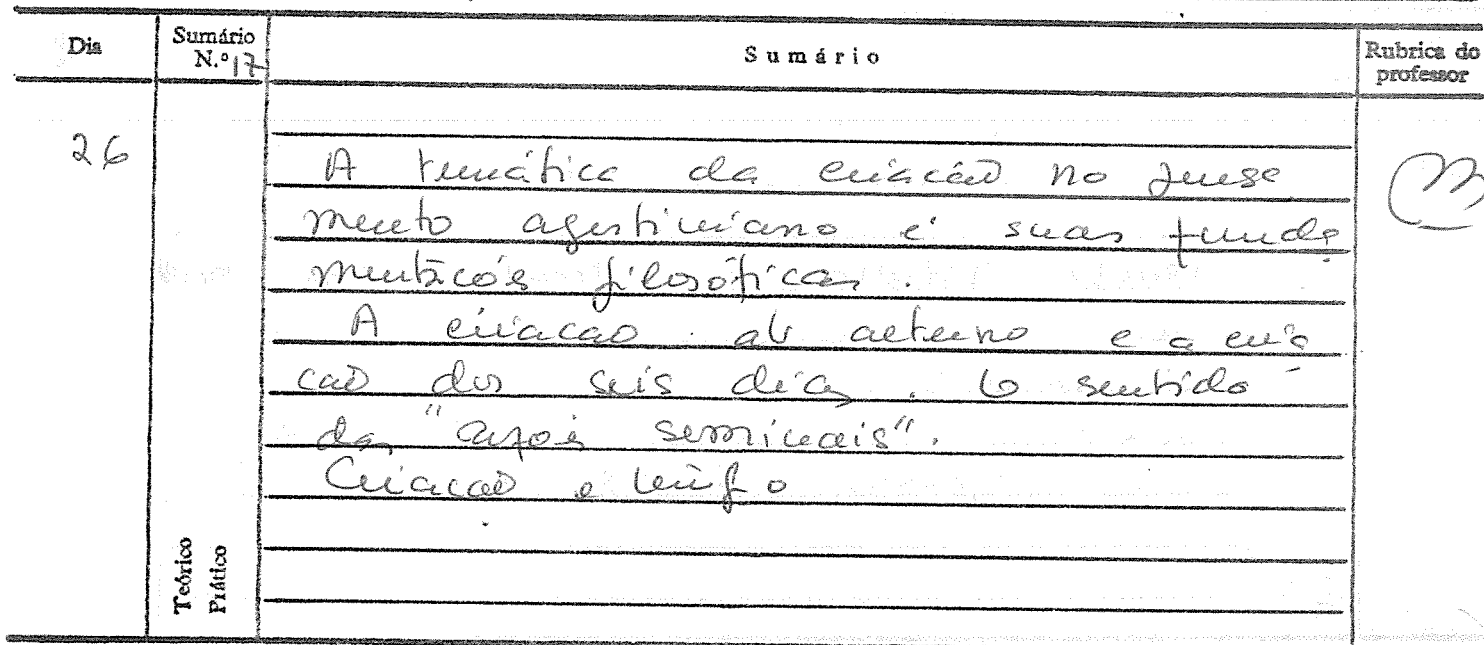 Dia
Sumário
N.º 17
Sumário
Rubrica do
professor
26
A temática da criação no pensa
mento agustiniano e suas funda
mentações filosóficas.
A criacao ab aeterno e a cria
cão dos seis dias. O sentido
das "razões seminais".
Criacão e tempo
Teórico
Prático